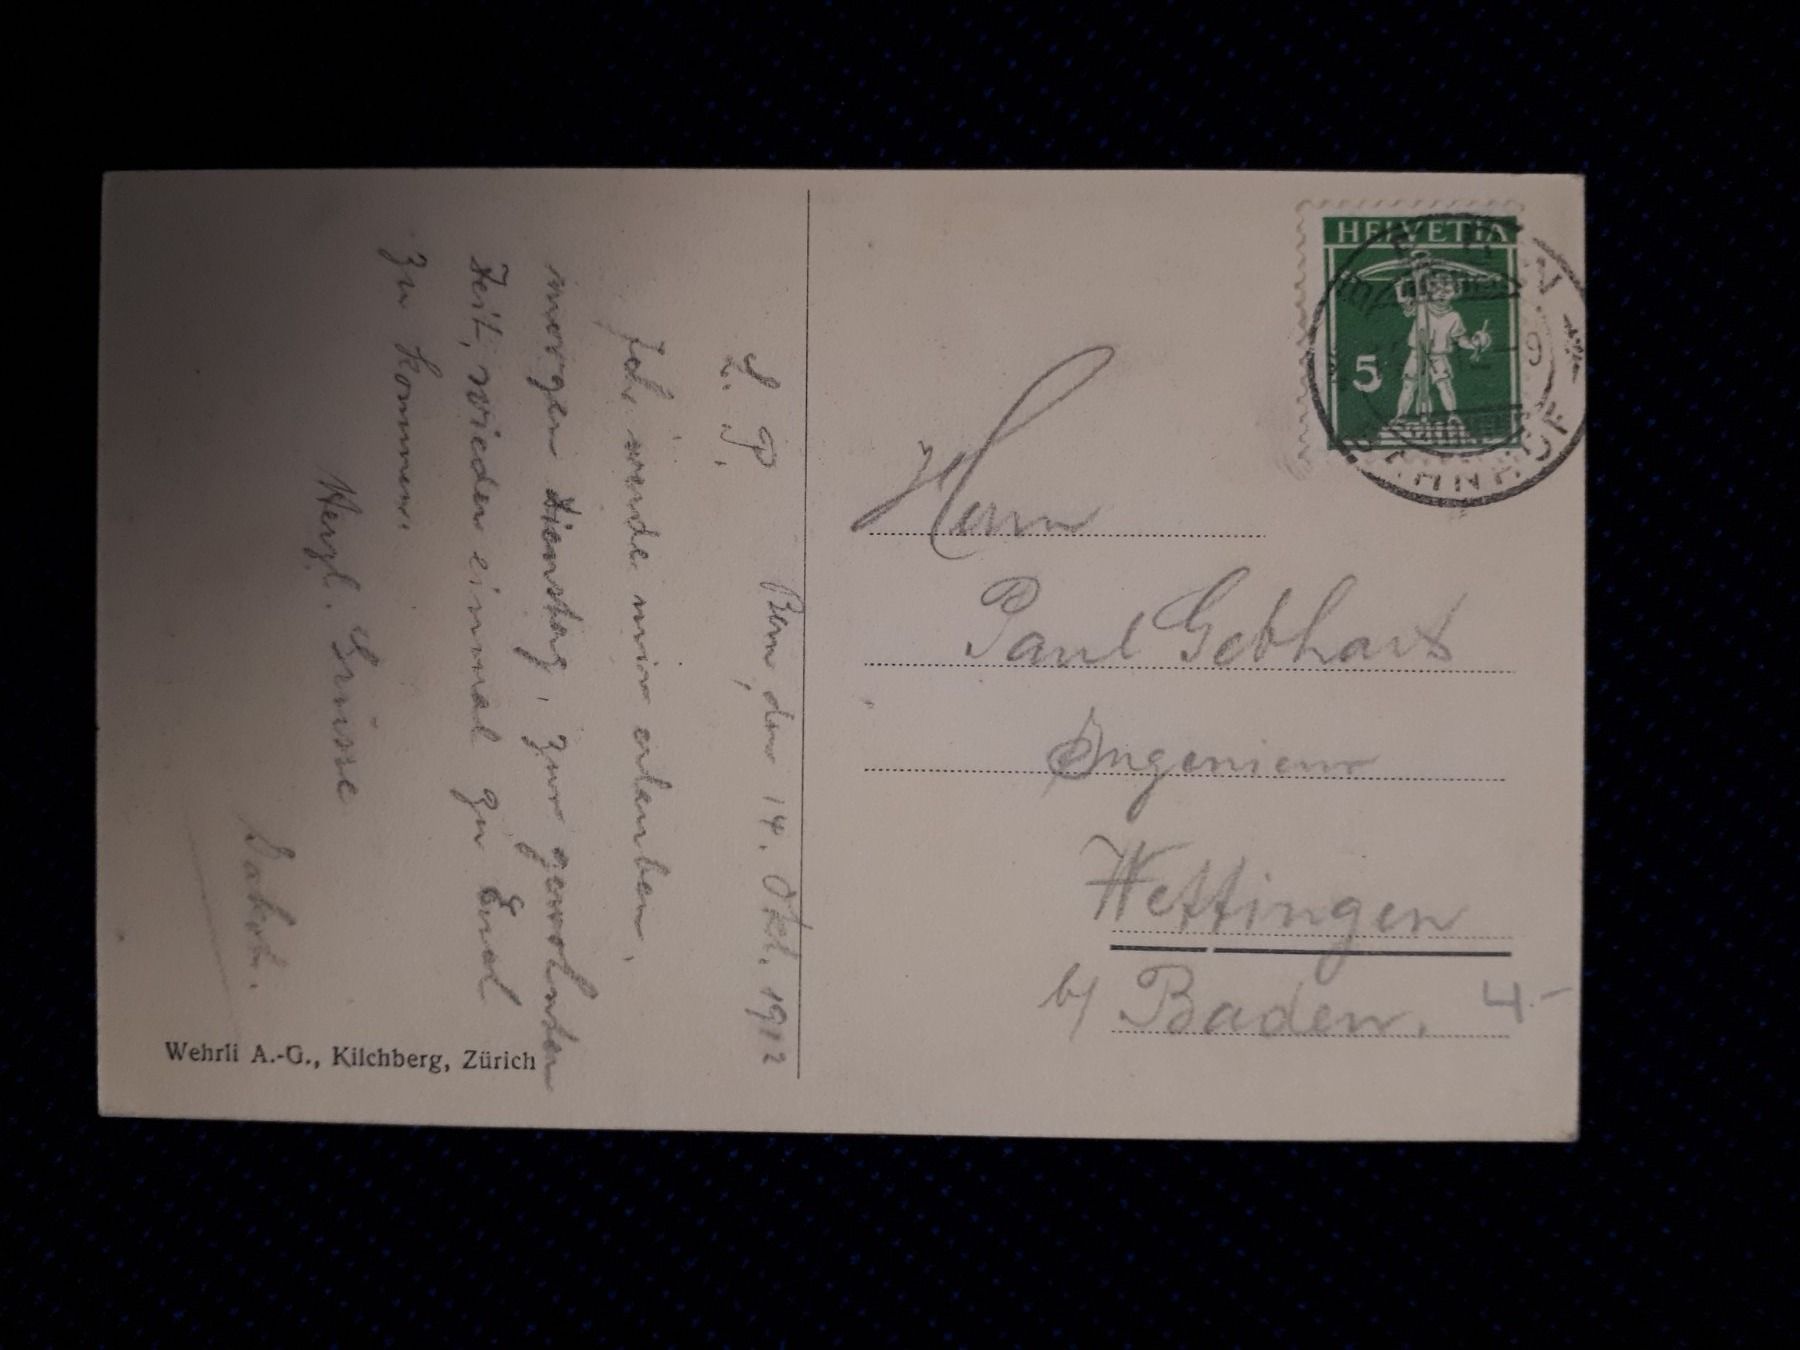 Bern, den 14. Okt. 1912
L. P.
Ich werde mir erlauben,
morgen Dienstag, zur gewohnten
Zeit, wieder einmal zu Euch
zu kommen.
Herzl. Grüsse
Wehrli A.-G., Kilchberg, Zürich
HELVETIA
5
BAHNHOF
Herrn
Paul Gebhart
Ingenieur
Wettingen
b/ Baden.
4.-